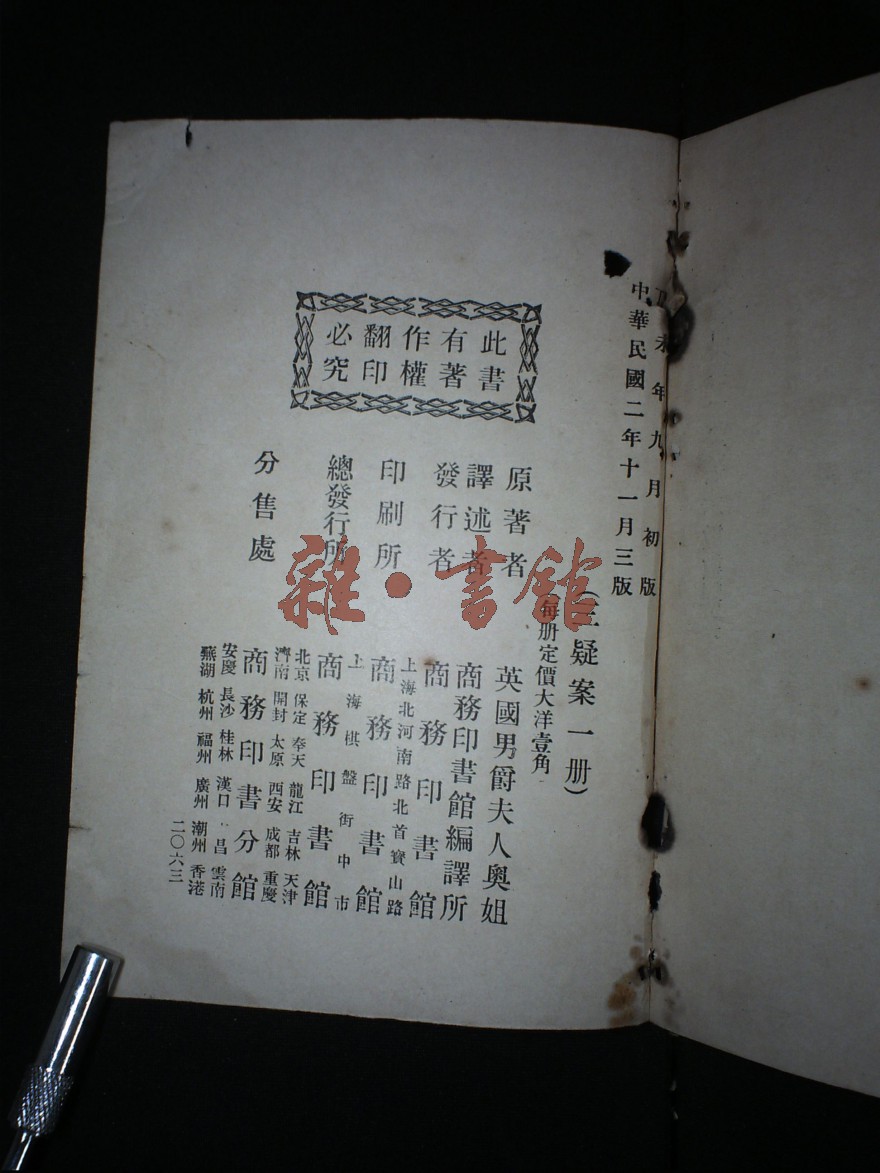 丁未年九月初版
中華民國二年十一月三版
(三疑案一册)
每册定價大洋壹角
此書
有著
作權
翻印
必究
原著者 英國男爵夫人奧姐
譯述者 商務印書館編譯所
發行者 商務印書館
上海北河南路北首寶山路
印刷所 商務印書館
上海棋盤街中市
總發行所 商務印書館
北京 保定 奉天 龍江 吉林 天津
濟南 開封 太原 西安 成都 重慶
分售處 商務印書分館
安慶 長沙 桂林 漢口 昌 雲南
蕪湖 杭州 福州 廣州 潮州 香港
二〇六三
雜·書館